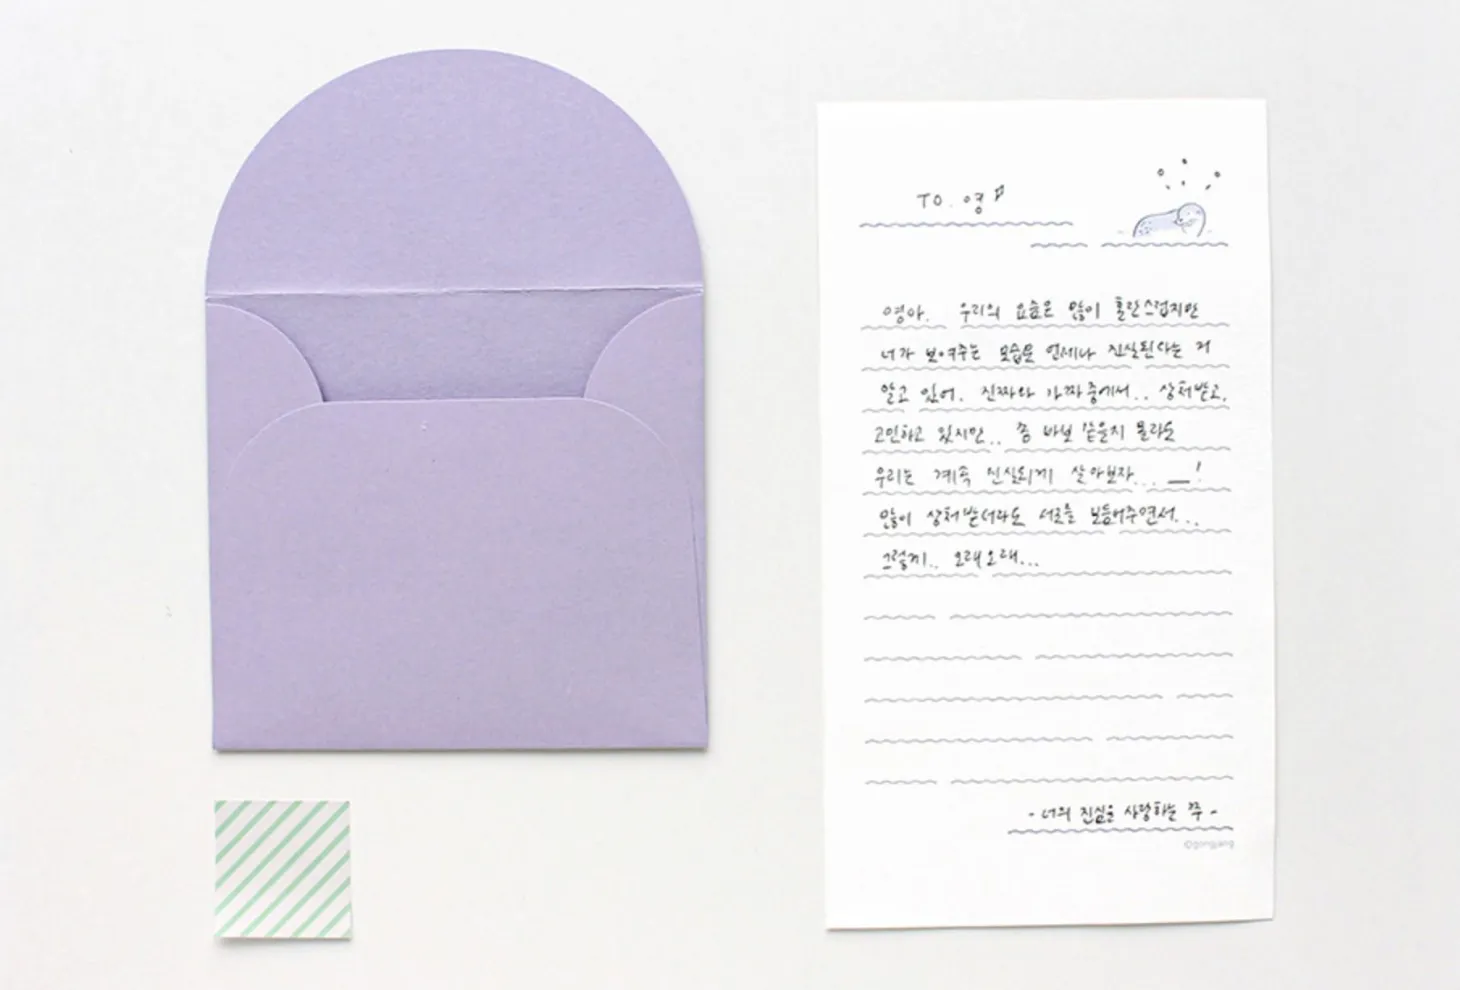 TO. 영
영아. 우리의 요즘은 많이 혼란스럽지만
너가 보여주는 모습은 언제나 진실된다는 거
알고 있어. 진짜와 가짜 중에서.. 상처받고,
고민하고 있지만.. 좀 바보 같을지 몰라도
우리는 계속 진실되게 살아보자... __!
많이 상처받더라도 서로를 보듬어주면서...
그렇게.. 오래오래...
- 너의 진실을 사랑하는 쭈 -
©gongjang